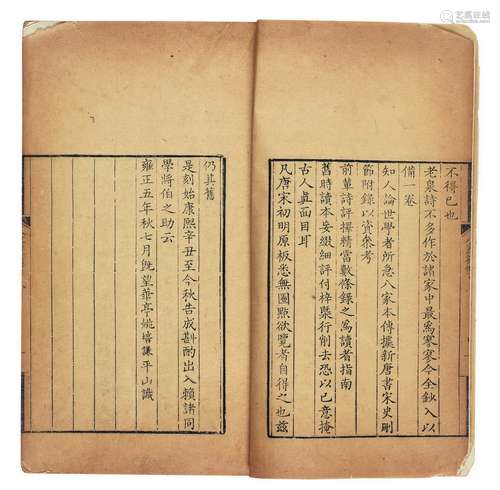 不得已也
老泉詩不多作於諸家中最爲寥寥今全鈔入以
備一卷
知人論世學者所急八家本傳據新唐書宋史刪
節附錄以資叅考
前輩詩評撰精當數條錄之爲讀者指南
舊時讀本妄綴細評付梓槩行削去恐以已意掩
古人真面目耳
凡唐宋初明原板悉無圈㸃欲覽者自得之也兹
仍其舊
是刻始康熙辛丑至今秋告成斟酌出入賴諸同
學將伯之助云
雍正五年秋七月旣望華亭姚培謙平山識
艺狐在线